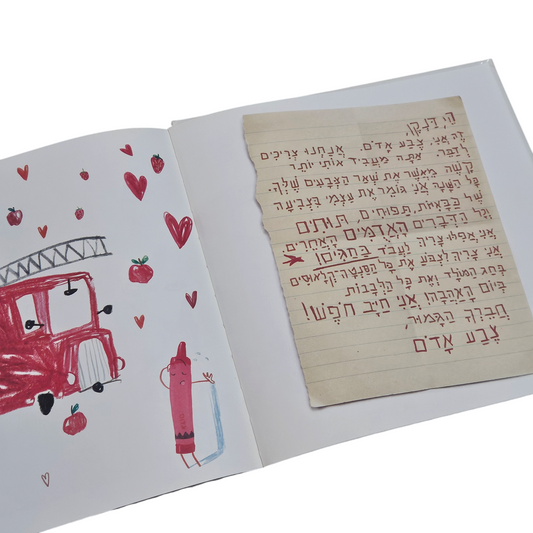 הֵי, דַּנְקָן,
זֶה אֲנִי, צֶבַע אָדֹם. אֲנַחְנוּ צְרִיכִים
לְדַבֵּר. אַתָּה מַעֲבִיד אוֹתִי יוֹתֵר
קָשֶׁה מֵאֲשֶׁר אֶת שְׁאָר הַצְּבָעִים שֶׁלְּךָ.
כָּל הַשָּׁנָה אֲנִי גּוֹמֵר אֶת עַצְמִי בִּצְבִיעָה
שֶׁל כַּבָּאִיּוֹת, תַּפּוּחִים, תּוּתִים
וְכָל הַדְּבָרִים הָאֲדֻמִּים הָאֲחֵרִים.
אֲנִי אֲפִלּוּ צָרִיךְ לַעֲבֹד בַּחַגִּים!
אֲנִי צָרִיךְ לִצְבֹּעַ אֶת כָּל הַסַּנְטָה־קְלָאוּסִים
בְּחַג הַמּוֹלָד וְאֶת כָּל הַלְּבָבוֹת
בְּיוֹם הָאַהֲבָה! אֲנִי חַיָּב חֹפֶשׁ!
חֲבֵרְךָ הַגָּמוּר,
צֶבַע אָדֹם